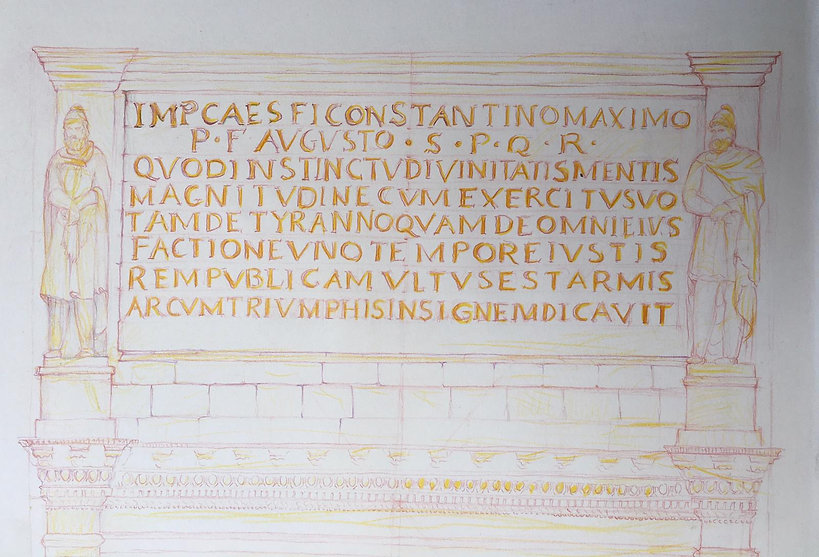 IMP CAES FI CONSTANTINO MAXIMO
P · F AVGVSTO · S · P · Q · R ·
QVOD INSTINCTV DIVINITATIS MENTIS
MAGNITVDINE CVM EXERCITV SVO
TAM DE TYRANNO QVAM DE OMNI EIVS
FACTIONE VNO TEMPORE IVSTIS
REM PVBLICAM VLTVS EST ARMIS
ARCVM TRIVMPHIS INSIGNEM DICAVIT